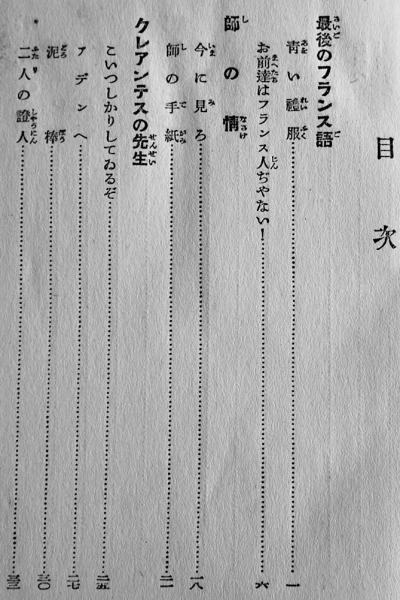 目次
最後のフランス語
青い禮服 一
お前達はフランス人ぢやない! 六
師の情
今に見ろ 一八
師の手紙 二一
クレアンテスの先生
こいつしかりしてゐるぞ 二五
アデンへ 二七
泥棒 三〇
二人の證人 三三